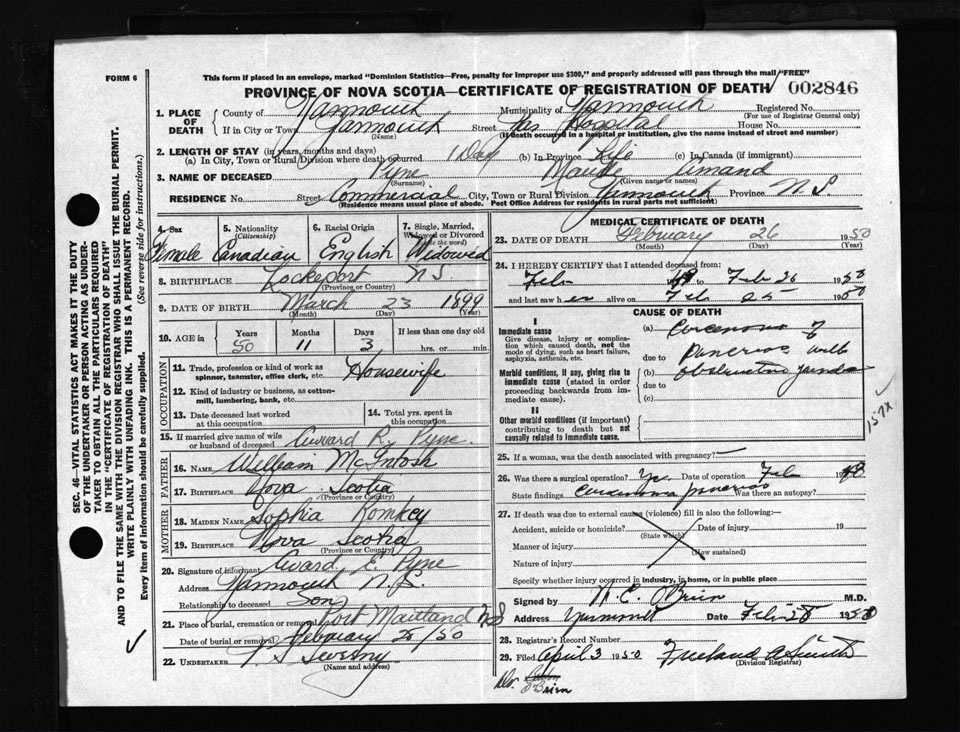 FORM 6
This form if placed in an envelope, marked "Dominion Statistics—Free, penalty for improper use $300," and properly addressed will pass through the mail "FREE"
PROVINCE OF NOVA SCOTIA—CERTIFICATE OF REGISTRATION OF DEATH 002846
1. PLACE OF DEATH
County of Yarmouth Municipality of Yarmouth Registered No.
(For use of Registrar General only)
If in City or Town Yarmouth Street Yar Hospital House No.
(Name) (If death occurred in a hospital or institution, give the name instead of street and number)
2. LENGTH OF STAY (in years, months and days)
(a) In City, Town or Rural Division where death occurred 1 Day (b) In Province Life (c) In Canada (if immigrant)
3. NAME OF DECEASED Pyne Maude
(Surname) (Given name or names)
RESIDENCE No. Street Commercial City, Town or Rural Division Yarmouth Province N S
(Residence means usual place of abode. Post Office Address for residents in rural parts not sufficient)
4. Sex Female
5. Nationality (Citizenship) Canadian
6. Racial Origin English
7. Single, Married, Widowed or Divorced (write the word) Widowed
8. BIRTHPLACE Lockeport N S.
(Province or Country)
9. DATE OF BIRTH March 23 1899
(Month) (Day) (Year)
10. AGE in Years Months Days If less than one day old
50 11 3 hrs. or min.
OCCUPATION
11. Trade, profession or kind of work as spinner, teamster, office clerk, etc. Housewife
12. Kind of industry or business, as cotton-mill, lumbering, bank, etc.
13. Date deceased last worked at this occupation
14. Total yrs. spent in this occupation
15. If married give name of wife or husband of deceased R. Pyne.
FATHER
16. NAME William McIntosh
17. BIRTHPLACE Nova Scotia
(Province or Country)
MOTHER
18. MAIDEN NAME Sophia Romkey
19. BIRTHPLACE Nova Scotia
(Province or Country)
20. Signature of informant E. Pyne
Address Yarmouth N.S.
Relationship to deceased Son
21. Place of burial, cremation or removal Port Maitland NS
Date of burial or removal February 28/50
22. UNDERTAKER
(Name and address)
MEDICAL CERTIFICATE OF DEATH
23. DATE OF DEATH February 26 1950
(Month) (Day) (Year)
24. I HEREBY CERTIFY that I attended deceased from:
Feb to Feb 26 1950
and last saw her alive on Feb 25 1950
CAUSE OF DEATH
I
Immediate cause
Give disease, injury or complication which caused death, not the mode of dying, such as heart failure, asphyxia, asthenia, etc.
(a) Carcenoma of
due to Pancreas with
Morbid conditions, if any, giving rise to immediate cause (stated in order proceeding backwards from immediate cause).
(b) obstructive
due to
(c)
II
Other morbid conditions (if important) contributing to death but not causally related to immediate cause.
157X
25. If a woman, was the death associated with pregnancy?
26. Was there a surgical operation? Yes. Date of operation Feb 19
State findings Carcenoma pancreas Was there an autopsy?
27. If death was due to external causes (violence) fill in also the following:—
Accident, suicide or homicide? Date of injury 19
(State which)
Manner of injury
(How sustained)
Nature of injury
Specify whether injury occurred in industry, in home, or in public place
Signed by M.C. O'Brien M.D.
Address Yarmouth Date Feb 28 1950
28. Registrar's Record Number
29. Filed April 3 1950 Freeland A Smith
(Division Registrar)
Dr. O'Brien
SEC. 46—VITAL STATISTICS ACT MAKES IT THE DUTY OF THE UNDERTAKER OR PERSON ACTING AS UNDERTAKER TO OBTAIN ALL THE PARTICULARS REQUIRED IN THE "CERTIFICATE OF REGISTRATION OF DEATH" AND TO FILE THE SAME WITH THE DIVISION REGISTRAR WHO SHALL ISSUE THE BURIAL PERMIT.
WRITE PLAINLY WITH UNFADING INK. THIS IS A PERMANENT RECORD.
Every item of information should be carefully supplied. (See reverse side for instructions.)